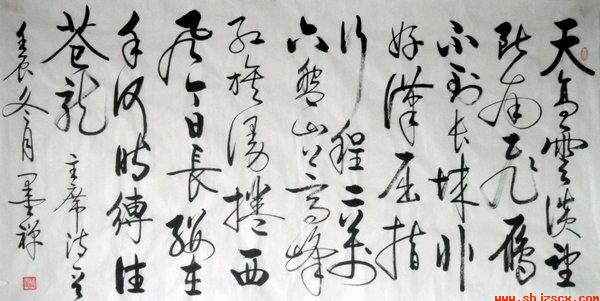 天高雲淡望
断南飛雁
不到长城非
好漢屈指
行程二萬
六盤山上高峰
红旗漫捲西
风今日長缨在
手何时縛住
苍龙 主席诗
壬辰冬月 墨禅
www.shizscx.com